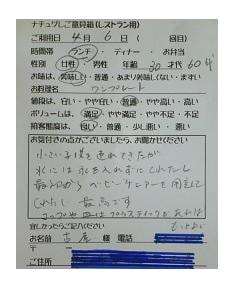 ナチュグしご意見箱(レストラン用)
ご利用日 4月 6日( 回目)
時間帯 ランチ・ディナー・お弁当
性別 女性・男性 年齢 30才代 60才
お味は、美味しい・普通・あまり美味しくない・まずい
お料理名 ワンプレート
値段は、安い・やや安い・普通・やや高い・高い
ボリュームは、満足・やや満足・やや不足・不足
接客態度は、良い・普通・少し悪い・悪い
お気付きの点がございましたら、お聞かせください
小さい子供を連れてきたが
水には氷を入れずにくれたし
最初からベビーチェアーを用意して
くれたし 最高です
コップや皿はプラスティックがあれば
もっとよい
宜しかったらご記入ください
お名前 様 電話
〒
ご住所